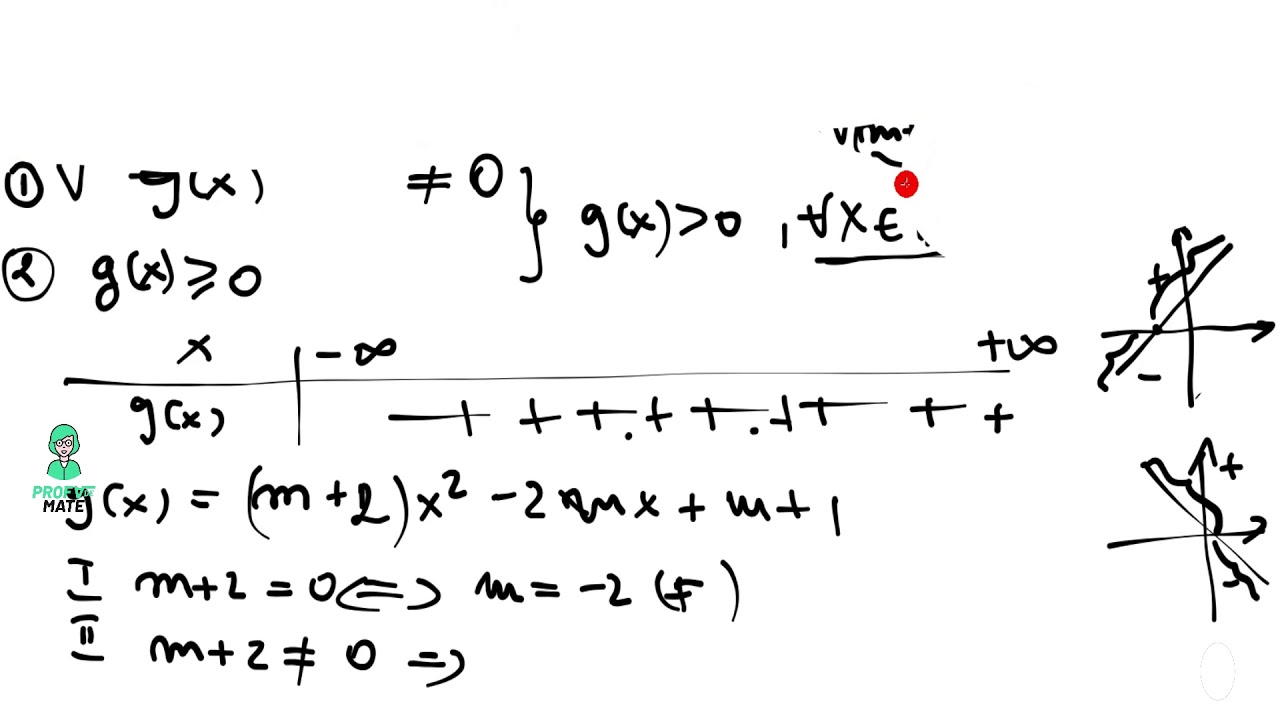 ① V g(x) ≠ 0 } g(x) > 0 , ∀x ∈
② g(x) ≥ 0
x -∞ +∞
g(x) + + + + + + + + +
g(x) = (m+2)x² - 2mx + m+1
I m+2 = 0 <=> m = -2 (F)
II m+2 ≠ 0 =>
+
-
+
-
PROFU' DE
MATE